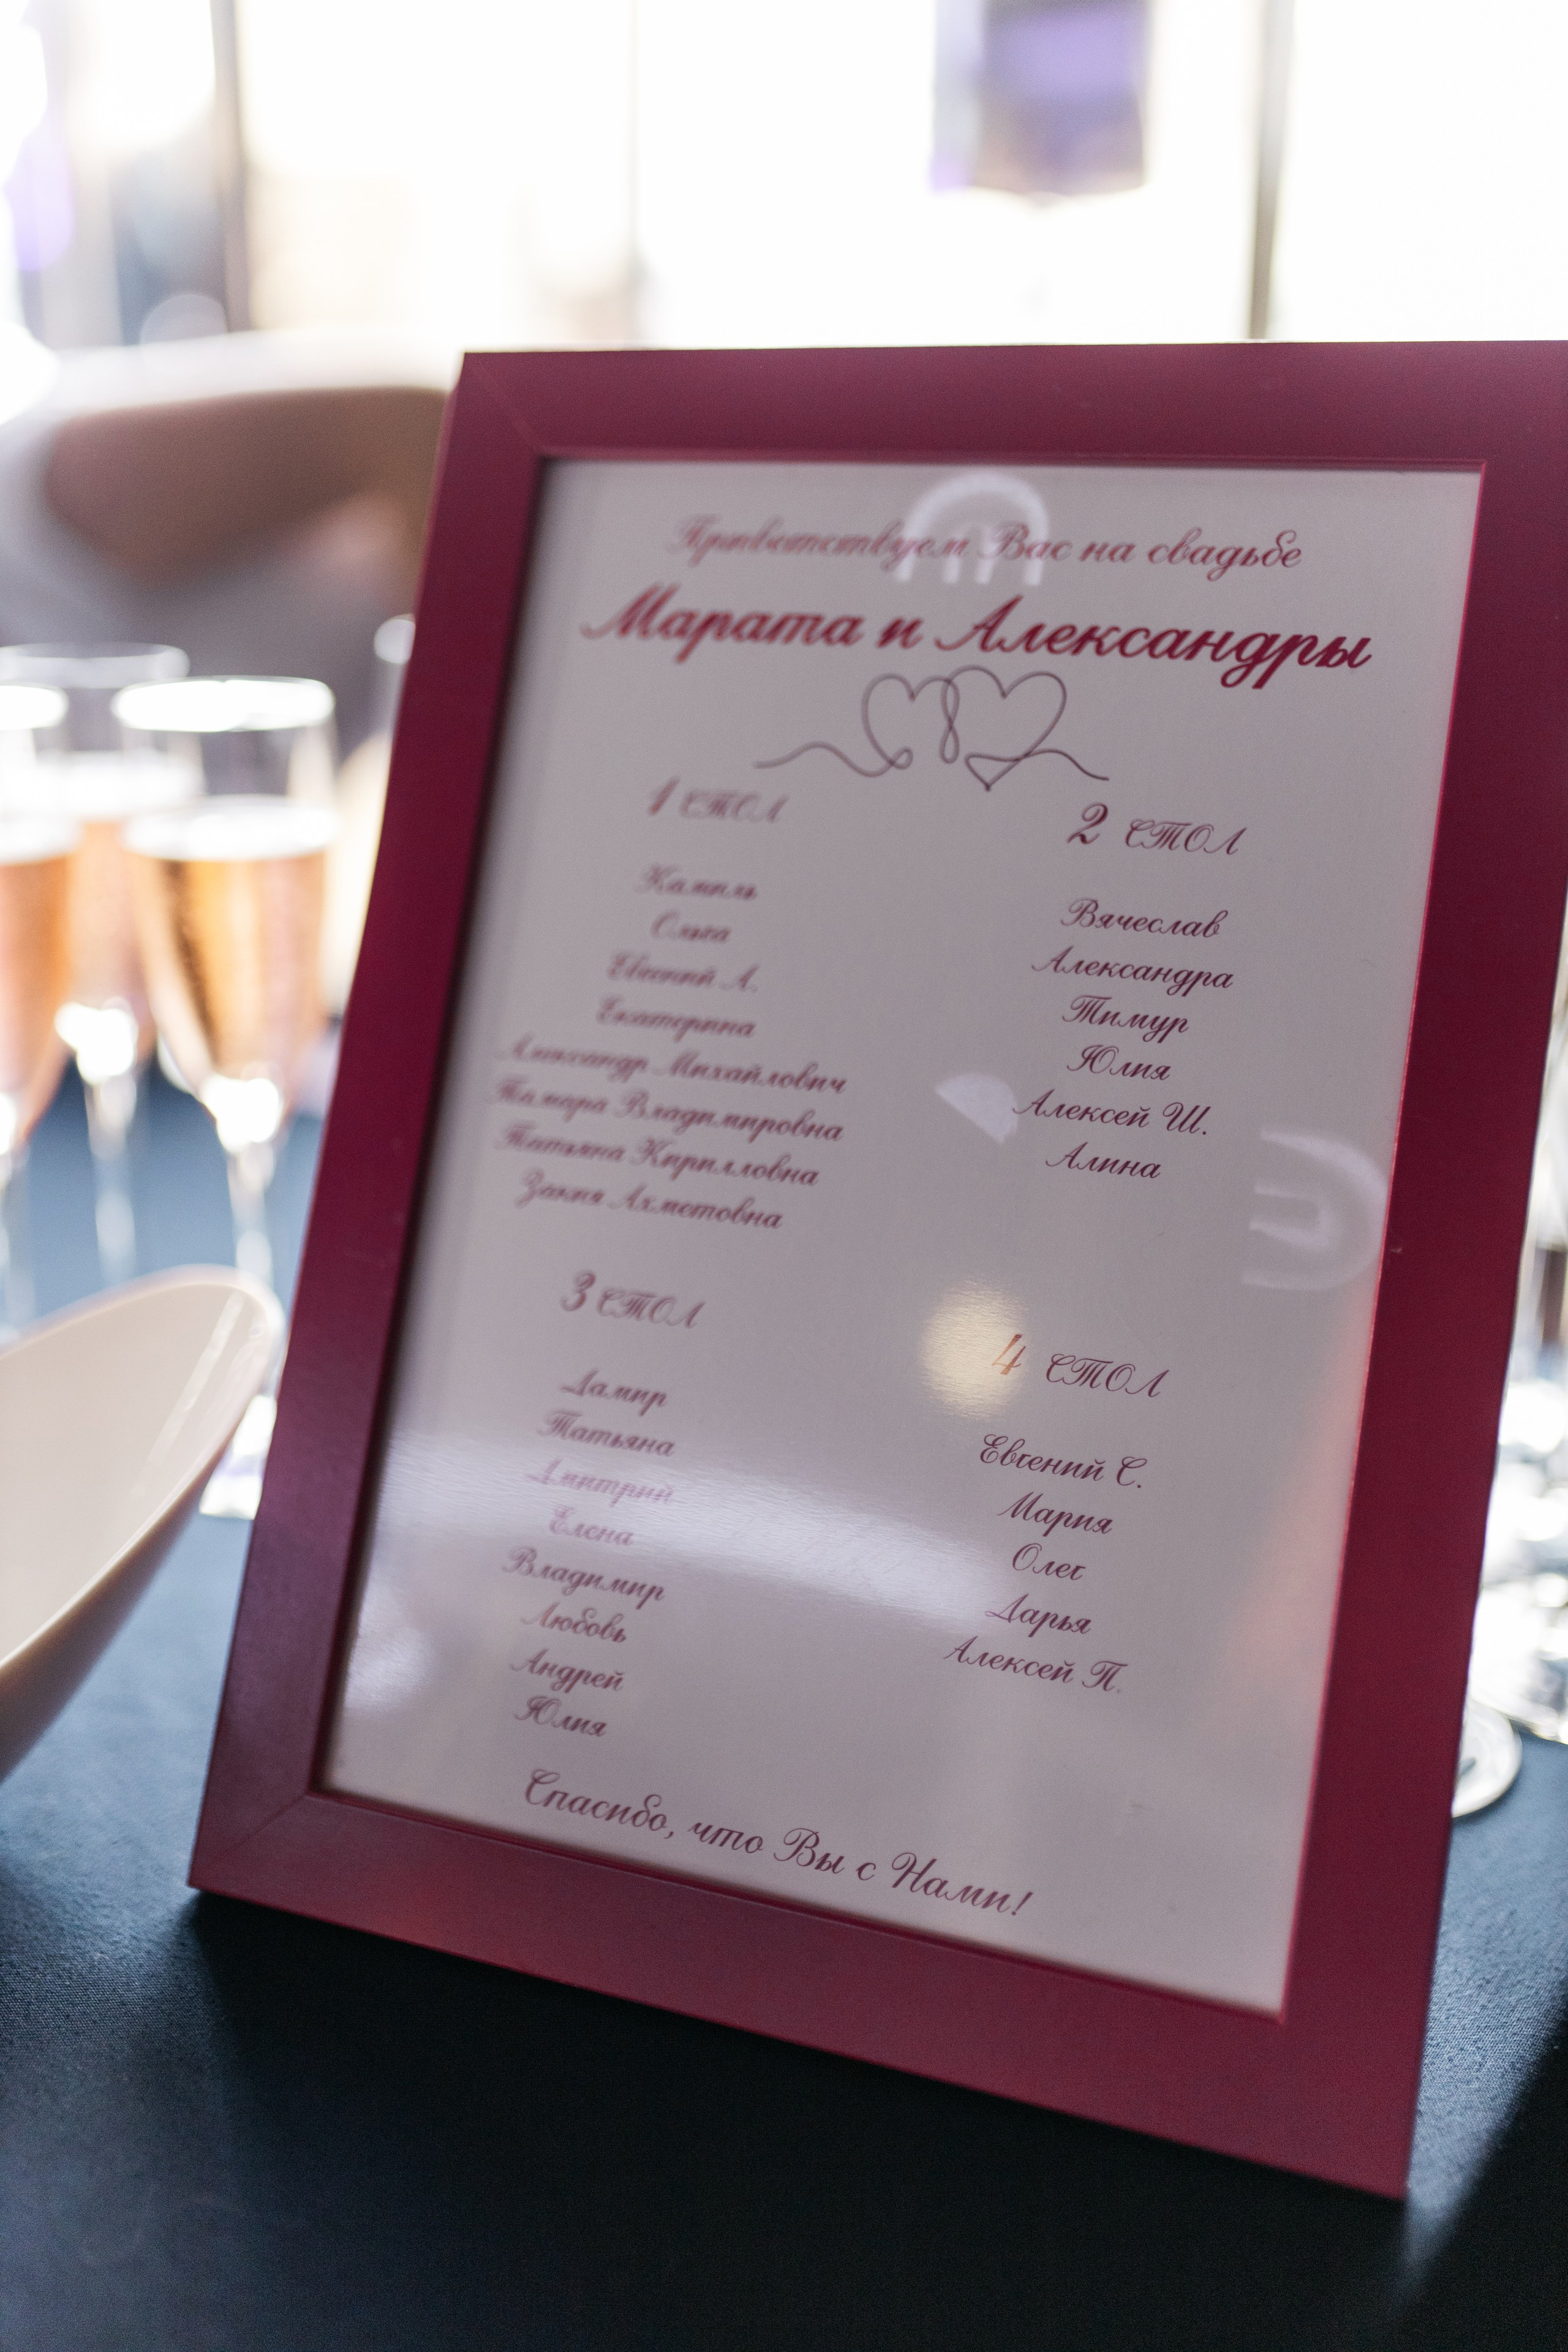 Приветствуем Вас на свадьбе
Марата и Александры
1 СТОЛ
Камиль
Ольга
Евгений А.
Екатерина
Александр Михайлович
Тамара Владимировна
Татьяна Кирилловна
Закия Ахметовна
2 СТОЛ
Вячеслав
Александра
Тимур
Юлия
Алексей Ш.
Алина
3 СТОЛ
Дамир
Татьяна
Дмитрий
Елена
Владимир
Любовь
Андрей
Юлия
4 СТОЛ
Евгений С.
Мария
Олег
Дарья
Алексей П.
Спасибо, что Вы с Нами!